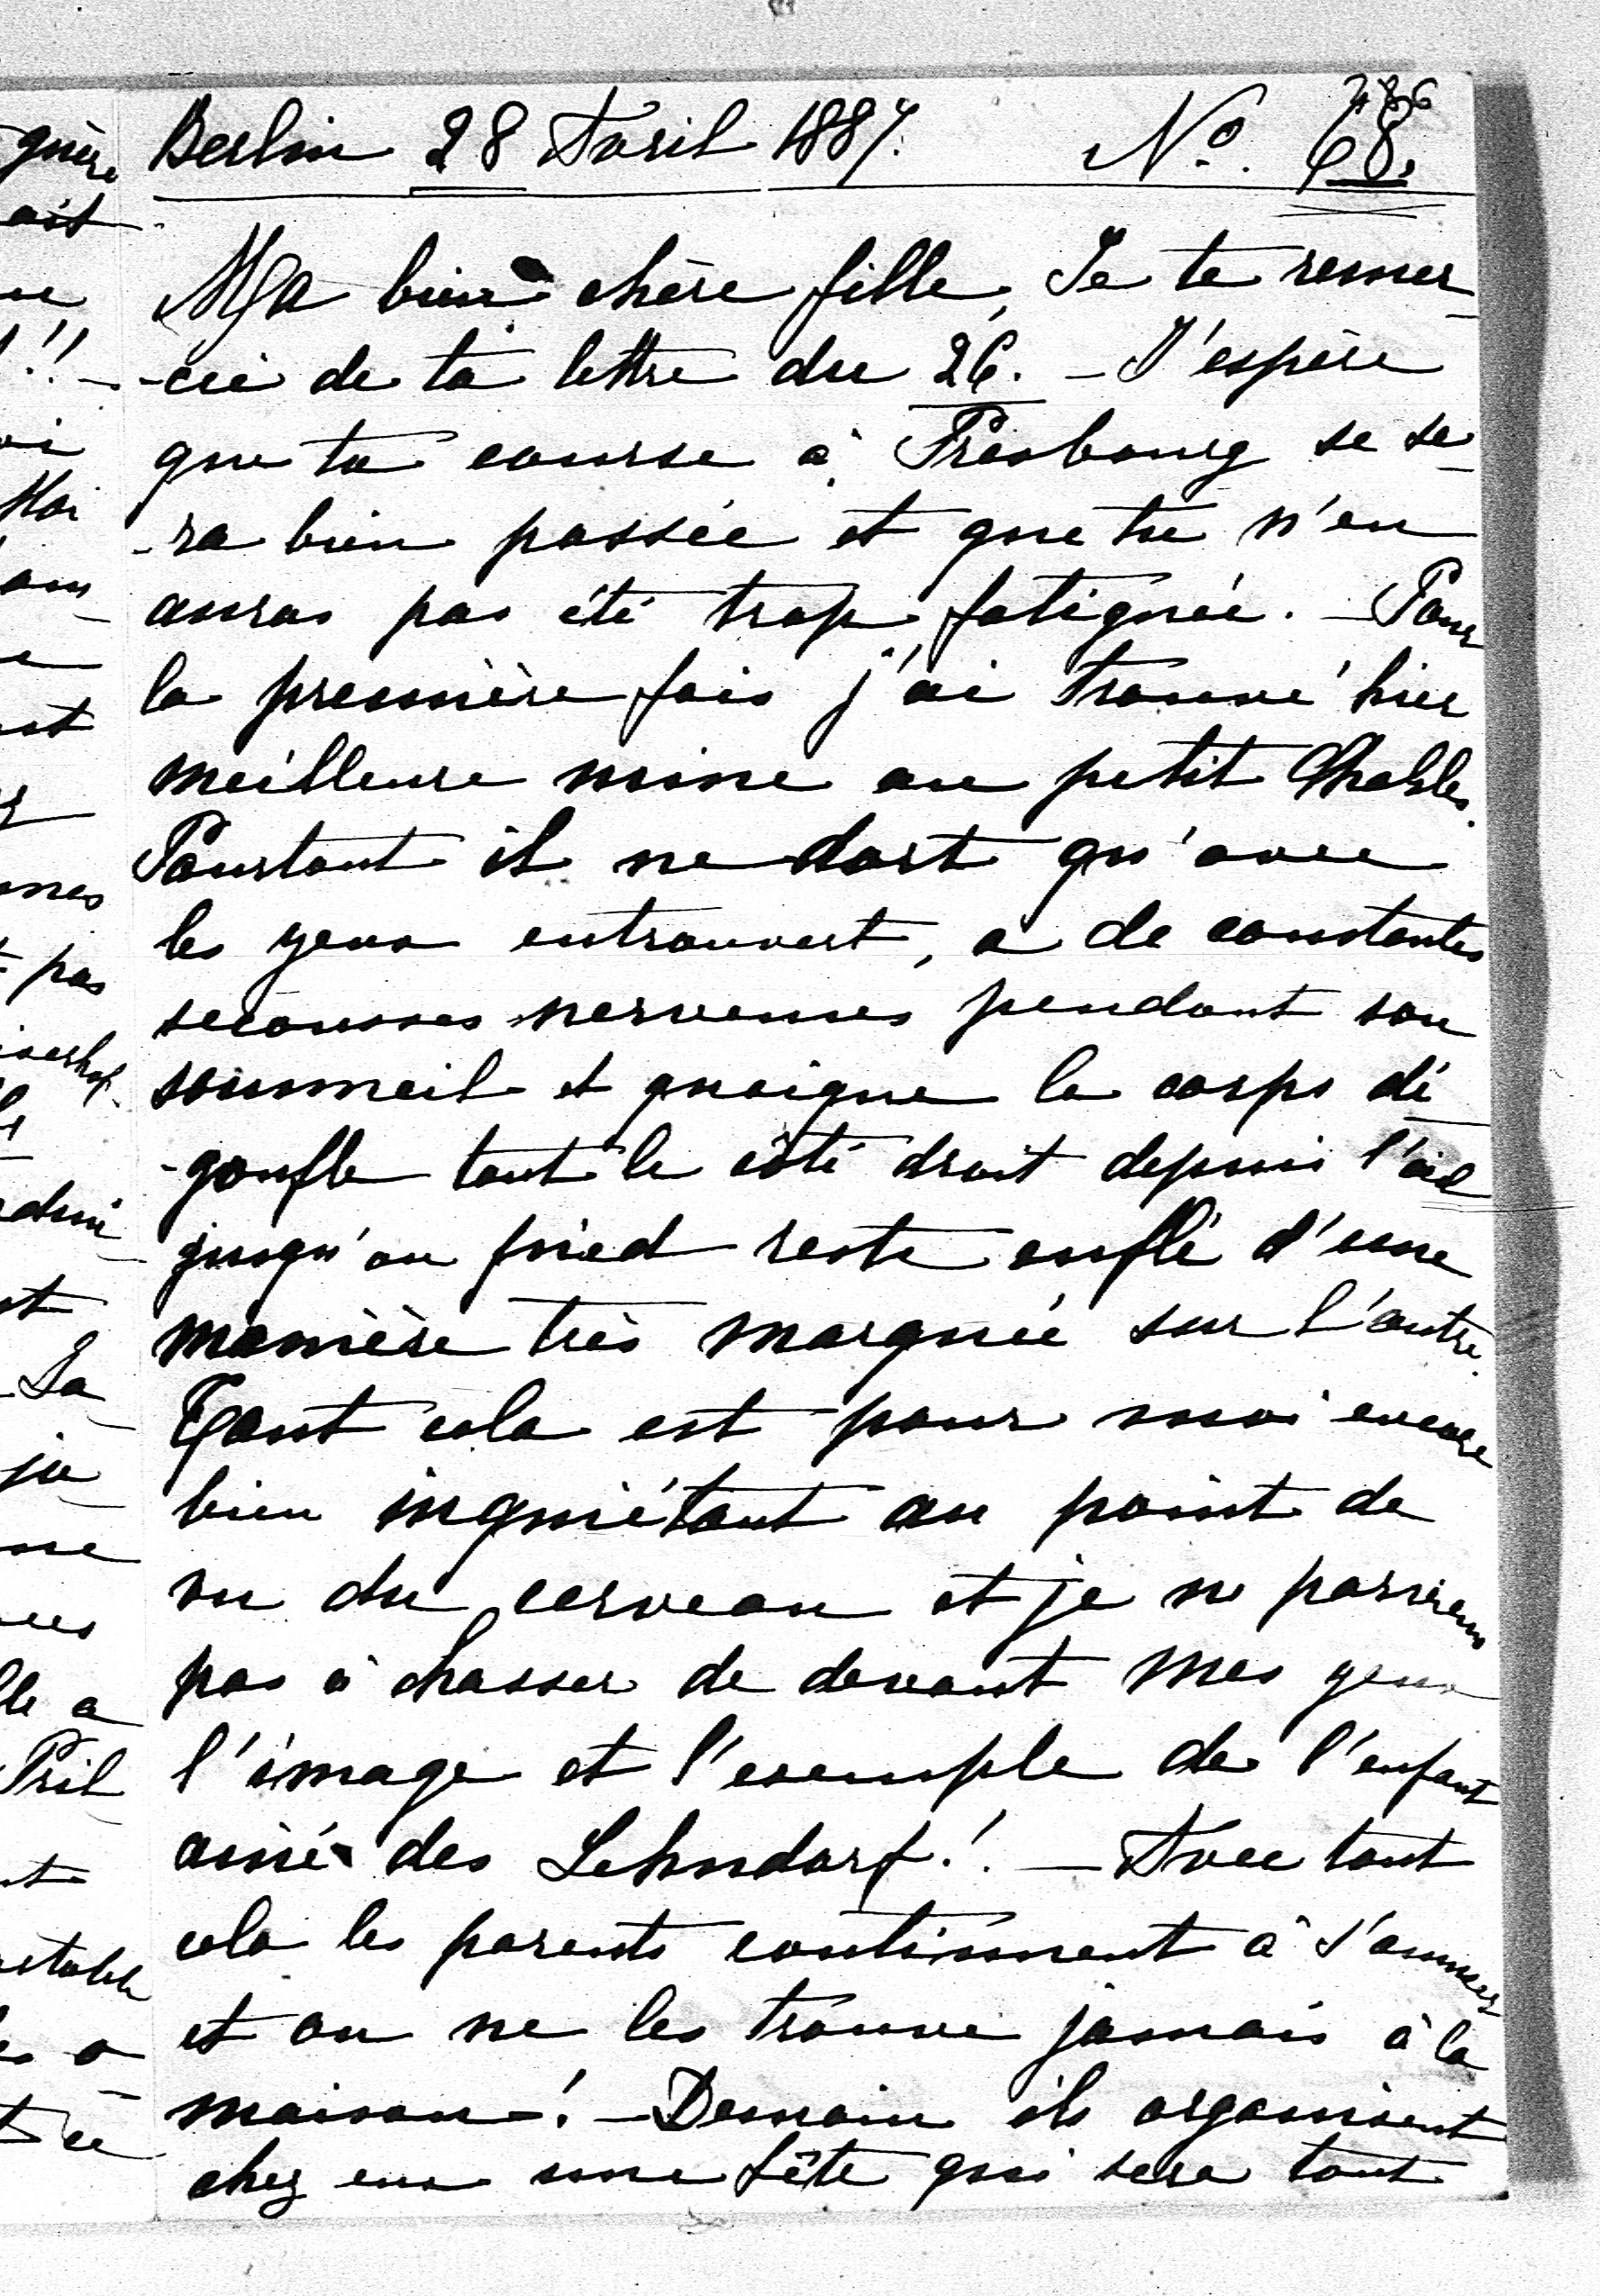 Berlin 28 Avril 1887. No. 68.
Ma bien chère fille, Je te remer-
-cie de ta lettre du 26. - J'espère
que ta course à Presbourg se se-
-ra bien passée et que tu n'en
auras pas été trop fatiguée. - Pour
la première fois j'ai trouvé hier
meilleure mine au petit Charles.
Pourtant il ne dort qu'avec
les yeux entrouvert, a de constantes
secousses nerveuses pendant son
sommeil et quoique le corps dé-
-goufle tout le côté droit depuis l'œil
jusqu'au pied reste enflé d'une
manière très marquée sur l'autre.
Tout cela est pour moi encore
bien inquiétant au point de
vu du cerveau et je ne parviens
pas à chasser de devant mes yeux
l'image et l'exemple de l'enfant
ainé des Lehndorf! - Avec tout
cela les parents continuent à s'amuser
et on ne les trouve jamais à la
maison! - Demain ils organisent
chez eux une fête qui sera tout